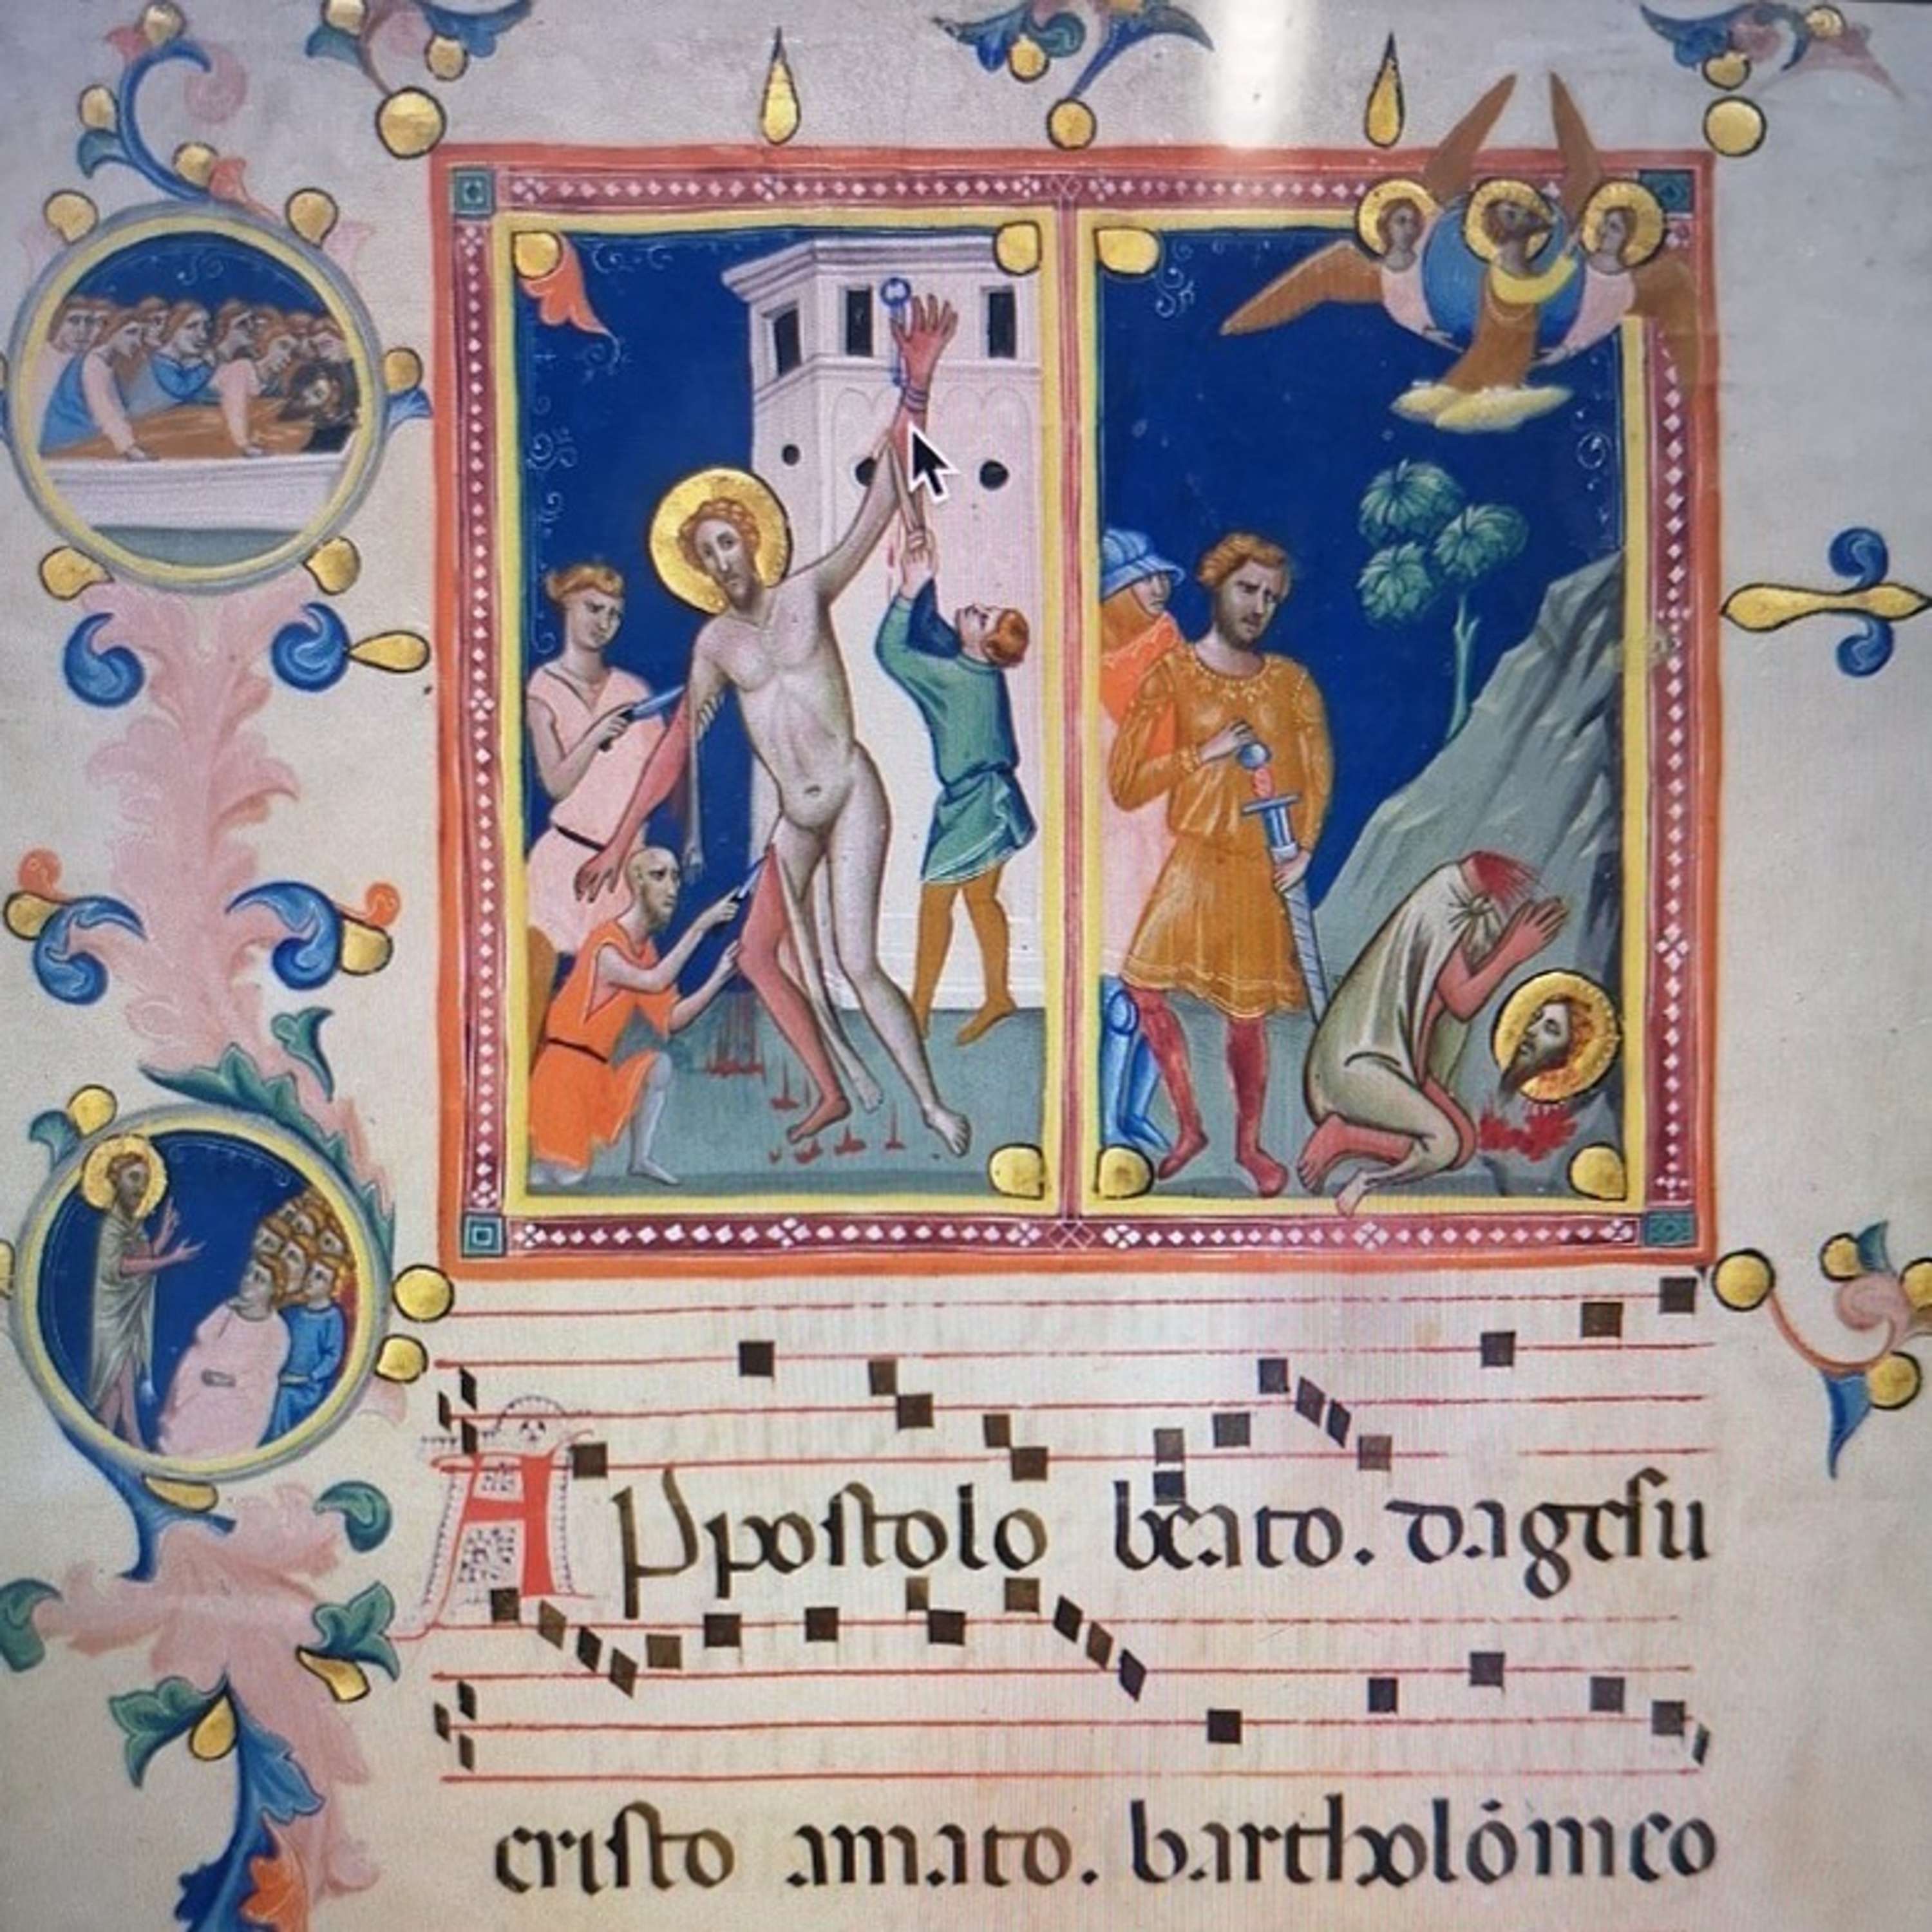 APpoſtolo beato. da geſu
criſto amato. bartholómeo